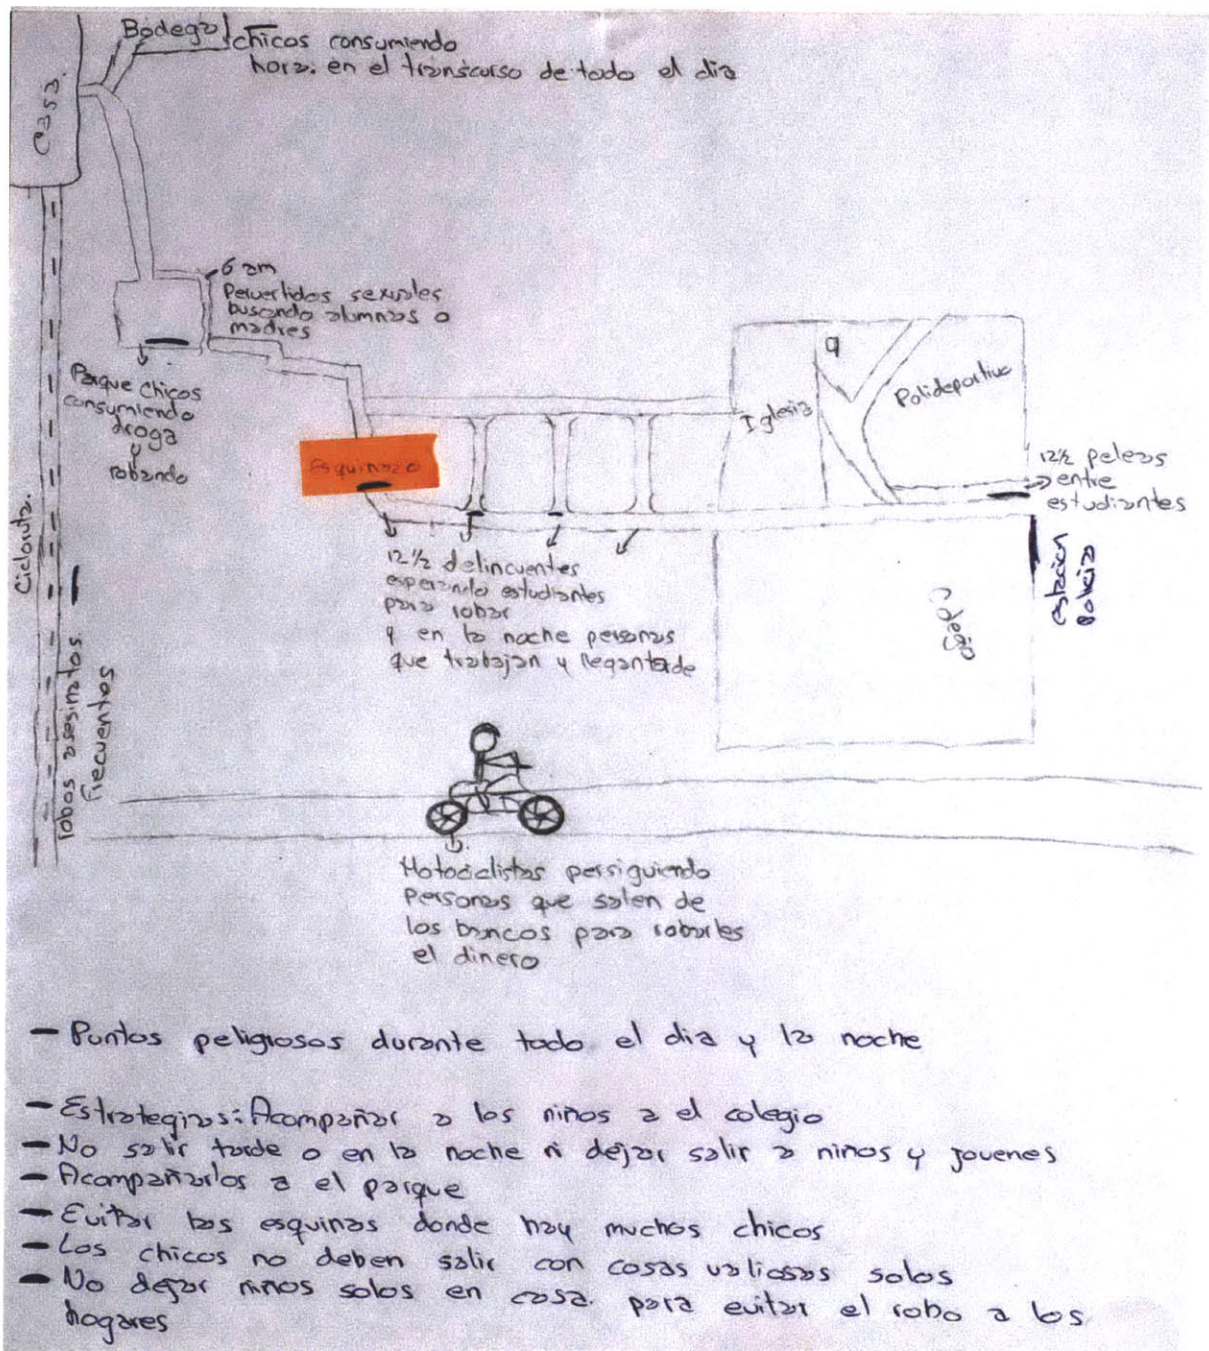 Bodega
chicos consumiendo
hora. en el transcurso de todo el dia
casa.
6 am
Pervertidos sexuales
buscando alumnas o
madres
Parque chicos
consumiendo
droga
y
robando
Esquinazo
Iglesia
q
Polideportivo
12½ peleas
entre
estudiantes
estacion
Policia
Colegio
12½ delincuentes
esperando estudiantes
para robar
q en la noche personas
que trabajan y llegan tarde
Cicloruta.
robos asesinatos
frecuentes
Motociclistas persiguiendo
Personas que salen de
los bancos para robarles
el dinero
— Puntos peligrosos durante todo el dia y la noche
— Estrategias: Acompañar a los niños a el colegio
— No salir tarde o en la noche ni dejar salir a niños y jovenes
— Acompañarlos a el parque
— Evitar las esquinas donde hay muchos chicos
— Los chicos no deben salir con cosas valiosas solos
— No dejar niños solos en casa. para evitar el robo a los
hogares